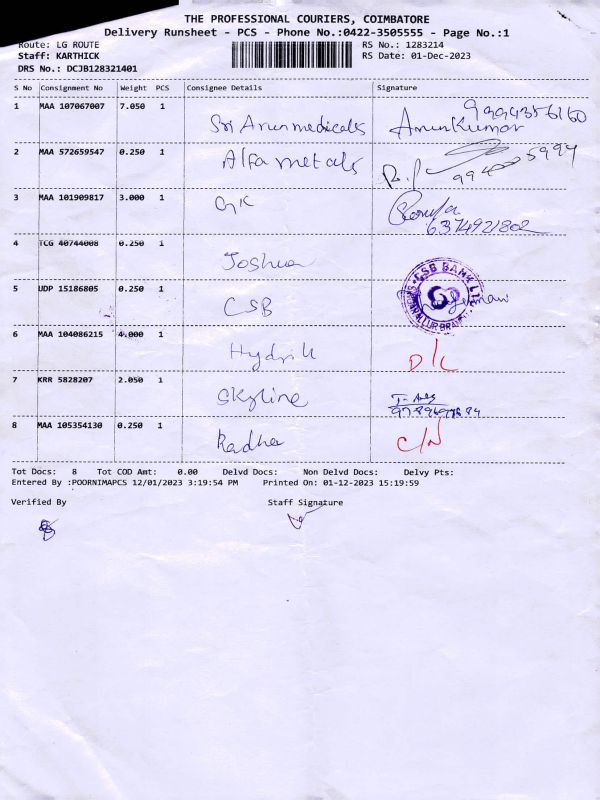 THE PROFESSIONAL COURIERS, COIMBATORE
Delivery Runsheet - PCS - Phone No.:0422-3505555 - Page No.:1
Route: LG ROUTE RS No.: 1283214
Staff: KARTHICK RS Date: 01-Dec-2023
DRS No.: DCJB128321401
S No Consignment No Weight PCS Consignee Details Signature
1 MAA 107067007 7.050 1 Sri Arun medicals Arun Kumar 9994356160
2 MAA 572659547 0.250 1 Alfa metals
3 MAA 101909817 3.000 1 GK 6374921802
4 TCG 40744008 0.250 1 Joshua
5 UDP 15186805 0.250 1 CSB CSB BANK LT
6 MAA 104086215 4.000 1 D/L
7 KRR 5828207 2.050 1 Skyline
8 MAA 105354130 0.250 1 Radha C/N
Tot Docs: 8 Tot COD Amt: 0.00 Delvd Docs: Non Delvd Docs: Delvy Pts:
Entered By :POORNIMAPCS 12/01/2023 3:19:54 PM Printed On: 01-12-2023 15:19:59
Verified By Staff Signature